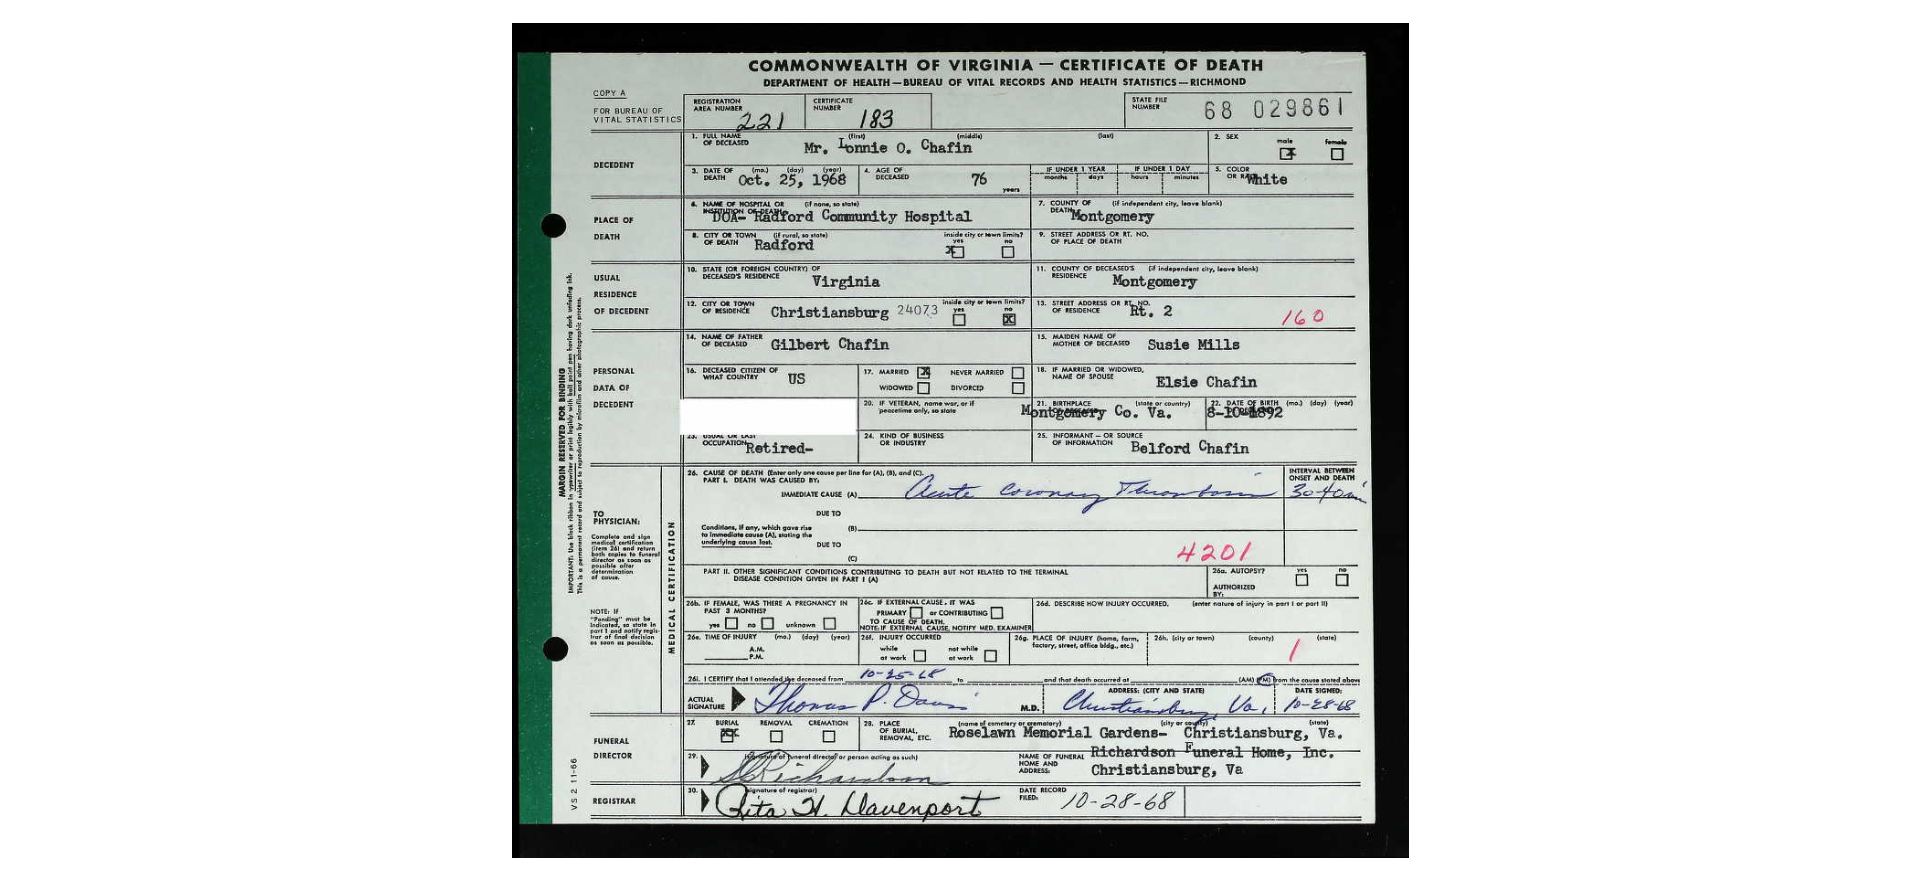 COMMONWEALTH OF VIRGINIA — CERTIFICATE OF DEATH
DEPARTMENT OF HEALTH—BUREAU OF VITAL RECORDS AND HEALTH STATISTICS—RICHMOND
COPY A
FOR BUREAU OF VITAL STATISTICS
REGISTRATION AREA NUMBER 221
CERTIFICATE NUMBER 183
STATE FILE NUMBER 68 029861
DECEDENT
1. FULL NAME OF DECEASED (first) (middle) (last) Mr. Lonnie O. Chafin
2. SEX male X female
3. DATE OF DEATH (mo.) (day) (year) Oct. 25, 1968
4. AGE OF DECEASED 76 years
IF UNDER 1 YEAR months days
IF UNDER 1 DAY hours minutes
5. COLOR OR RACE White
PLACE OF DEATH
6. NAME OF HOSPITAL OR INSTITUTION OF DEATH (if none, so state) DOA- Radford Community Hospital
7. COUNTY OF DEATH (if independent city, leave blank) Montgomery
8. CITY OR TOWN OF DEATH (if rural, so state) Radford
inside city or town limits? yes X no
9. STREET ADDRESS OR RT. NO. OF PLACE OF DEATH
USUAL RESIDENCE OF DECEDENT
10. STATE (OR FOREIGN COUNTRY) OF DECEASED'S RESIDENCE Virginia
11. COUNTY OF DECEASED'S RESIDENCE (if independent city, leave blank) Montgomery
12. CITY OR TOWN OF RESIDENCE Christiansburg 24073
inside city or town limits? yes no X
13. STREET ADDRESS OR RT. NO. OF RESIDENCE Rt. 2
160
PERSONAL DATA OF DECEDENT
14. NAME OF FATHER OF DECEASED Gilbert Chafin
15. MAIDEN NAME OF MOTHER OF DECEASED Susie Mills
16. DECEASED CITIZEN OF WHAT COUNTRY US
17. MARRIED X NEVER MARRIED
WIDOWED DIVORCED
18. IF MARRIED OR WIDOWED, NAME OF SPOUSE Elsie Chafin
20. IF VETERAN, name war, or if peacetime only, so state
21. BIRTHPLACE (state or country) Montgomery Co. Va.
22. DATE OF BIRTH (mo.) (day) (year) 8-10-1892
23. USUAL OR LAST OCCUPATION Retired-
24. KIND OF BUSINESS OR INDUSTRY
25. INFORMANT — OR SOURCE OF INFORMATION Belford Chafin
MARGIN RESERVED FOR BINDING
IMPORTANT: Use black ribbon in typewriter or print legibly with ball point pen having dark unfading ink.
This is a permanent record and subject to reproduction by microfilm and other photographic process.
MEDICAL CERTIFICATION
TO PHYSICIAN:
Complete and sign medical certification (item 26) and return both copies to funeral director as soon as possible after determination of cause.
NOTE: IF "Pending" must be indicated, so state in part I and notify registrar of final decision as soon as possible.
26. CAUSE OF DEATH (Enter only one cause per line for (A), (B), and (C).
PART I. DEATH WAS CAUSED BY:
IMMEDIATE CAUSE (A) Acute Coronary Thrombosis
INTERVAL BETWEEN ONSET AND DEATH 30-40 min
DUE TO
Conditions, if any, which gave rise to immediate cause (A), stating the underlying cause last.
(B)
DUE TO
(C)
4201
PART II. OTHER SIGNIFICANT CONDITIONS CONTRIBUTING TO DEATH BUT NOT RELATED TO THE TERMINAL DISEASE CONDITION GIVEN IN PART I (A)
26a. AUTOPSY? yes no
AUTHORIZED BY:
26b. IF FEMALE, WAS THERE A PREGNANCY IN PAST 3 MONTHS?
yes no unknown
26c. IF EXTERNAL CAUSE, IT WAS
PRIMARY or CONTRIBUTING
TO CAUSE OF DEATH.
NOTE: IF EXTERNAL CAUSE, NOTIFY MED. EXAMINER
26d. DESCRIBE HOW INJURY OCCURRED. (enter nature of injury in part I or part II)
26e. TIME OF INJURY (mo.) (day) (year)
A.M.
P.M.
26f. INJURY OCCURRED
while at work not while at work
26g. PLACE OF INJURY (home, farm, factory, street, office bldg., etc.)
26h. (city or town) (county) (state)
1
26i. I CERTIFY that I attended the deceased from 10-25-68 to and that death occurred at (AM) (PM) from the cause stated above
ACTUAL SIGNATURE Thomas P. Davis M.D.
ADDRESS: (CITY AND STATE) Christiansburg, Va.
DATE SIGNED: 10-28-68
FUNERAL DIRECTOR
27. BURIAL XX REMOVAL CREMATION
28. PLACE OF BURIAL, REMOVAL, ETC. (name of cemetery or crematory) (city or county) (state)
Roselawn Memorial Gardens- Christiansburg, Va.
29. (signature of funeral director or person acting as such)
Richardson
NAME OF FUNERAL HOME AND ADDRESS: Richardson Funeral Home, Inc.
Christiansburg, Va
REGISTRAR
30. (signature of registrar) Rita H. Davenport
DATE RECORD FILED: 10-28-68
VS 2 11-66